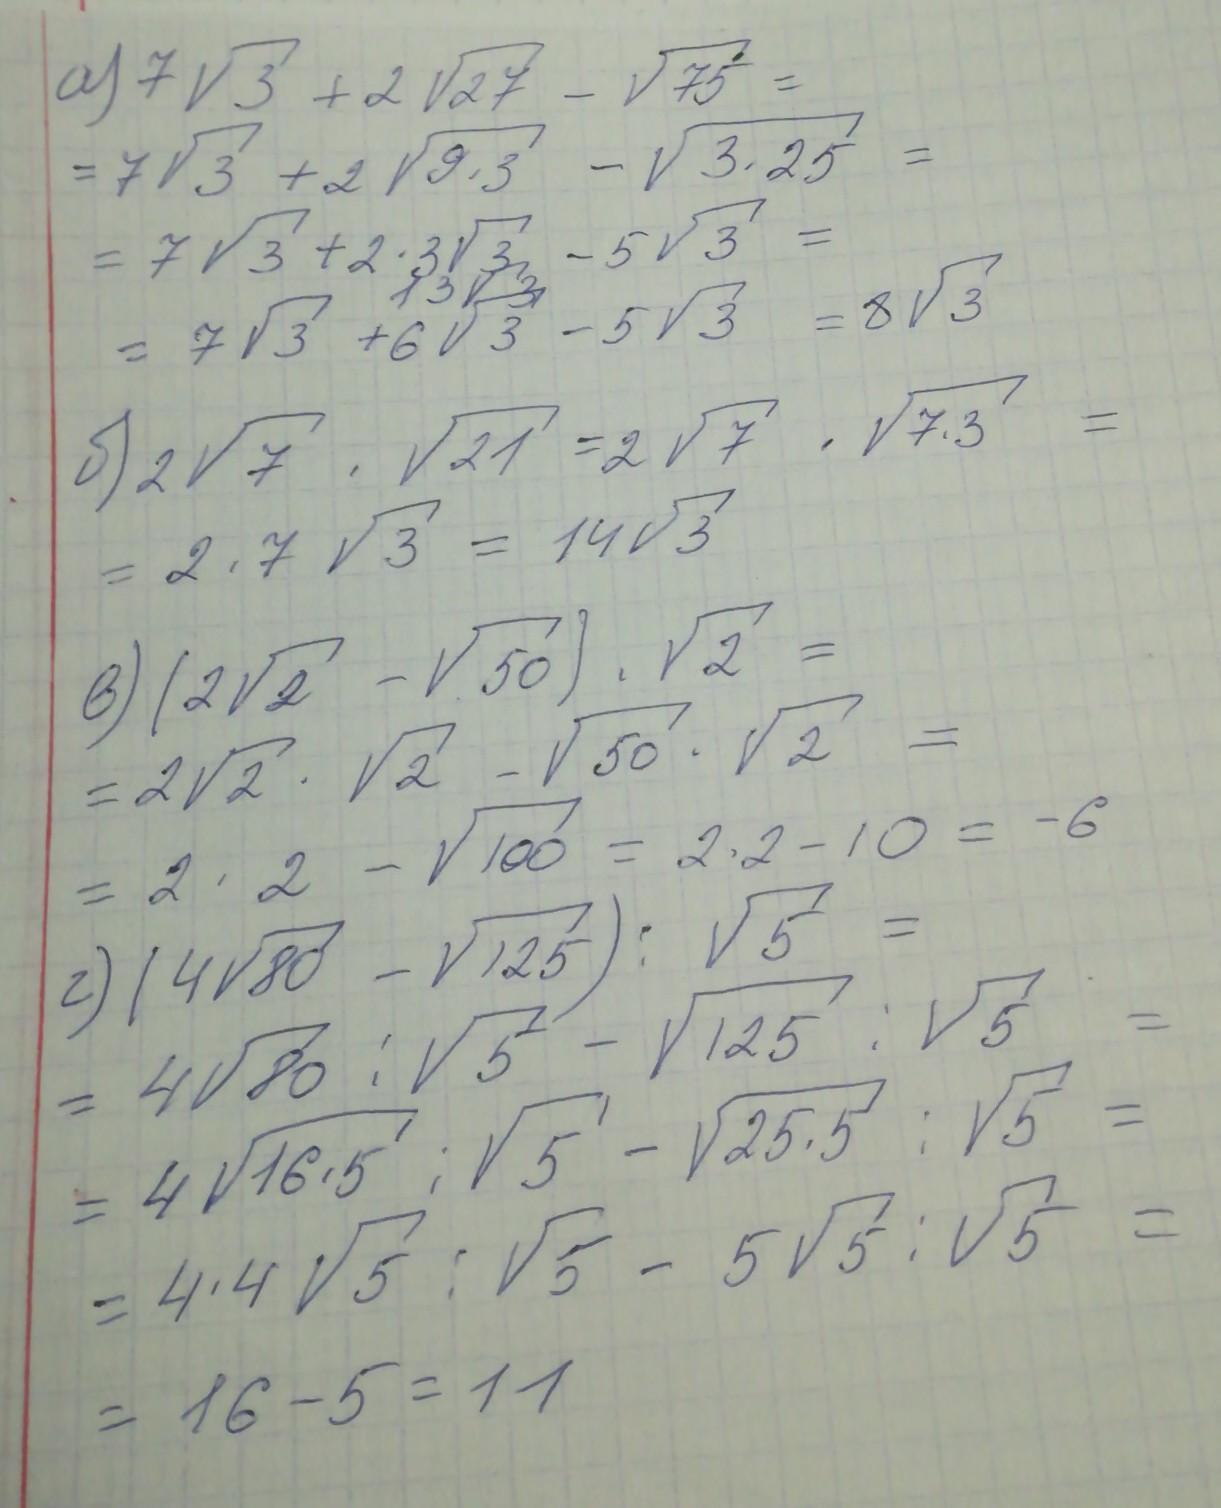 а) 7√3 + 2√27 - √75 =
= 7√3 + 2√9·3 - √3·25 =
= 7√3 + 2·3√3 - 5√3 =
13√3
= 7√3 + 6√3 - 5√3 = 8√3
б) 2√7 · √21 = 2√7 · √7·3 =
= 2·7√3 = 14√3
в) (2√2 - √50) · √2 =
= 2√2 · √2 - √50 · √2 =
= 2 · 2 - √100 = 2·2 - 10 = -6
г) (4√80 - √125) : √5 =
= 4√80 : √5 - √125 : √5 =
= 4√16·5 : √5 - √25·5 : √5 =
= 4·4√5 : √5 - 5√5 : √5 =
= 16 - 5 = 11